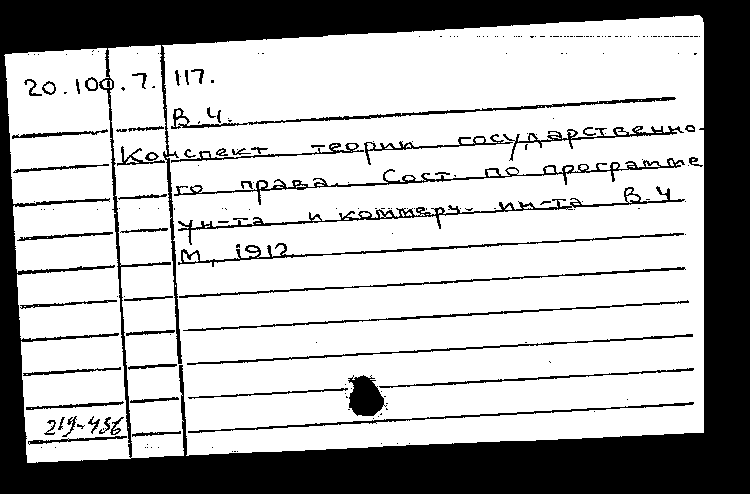 20.100.7.117.
В.Ч.
Конспект теории государственно-
го права. Сост. по программе
ун-та и коммерч. ин-та В.Ч
М, 1912
219-436